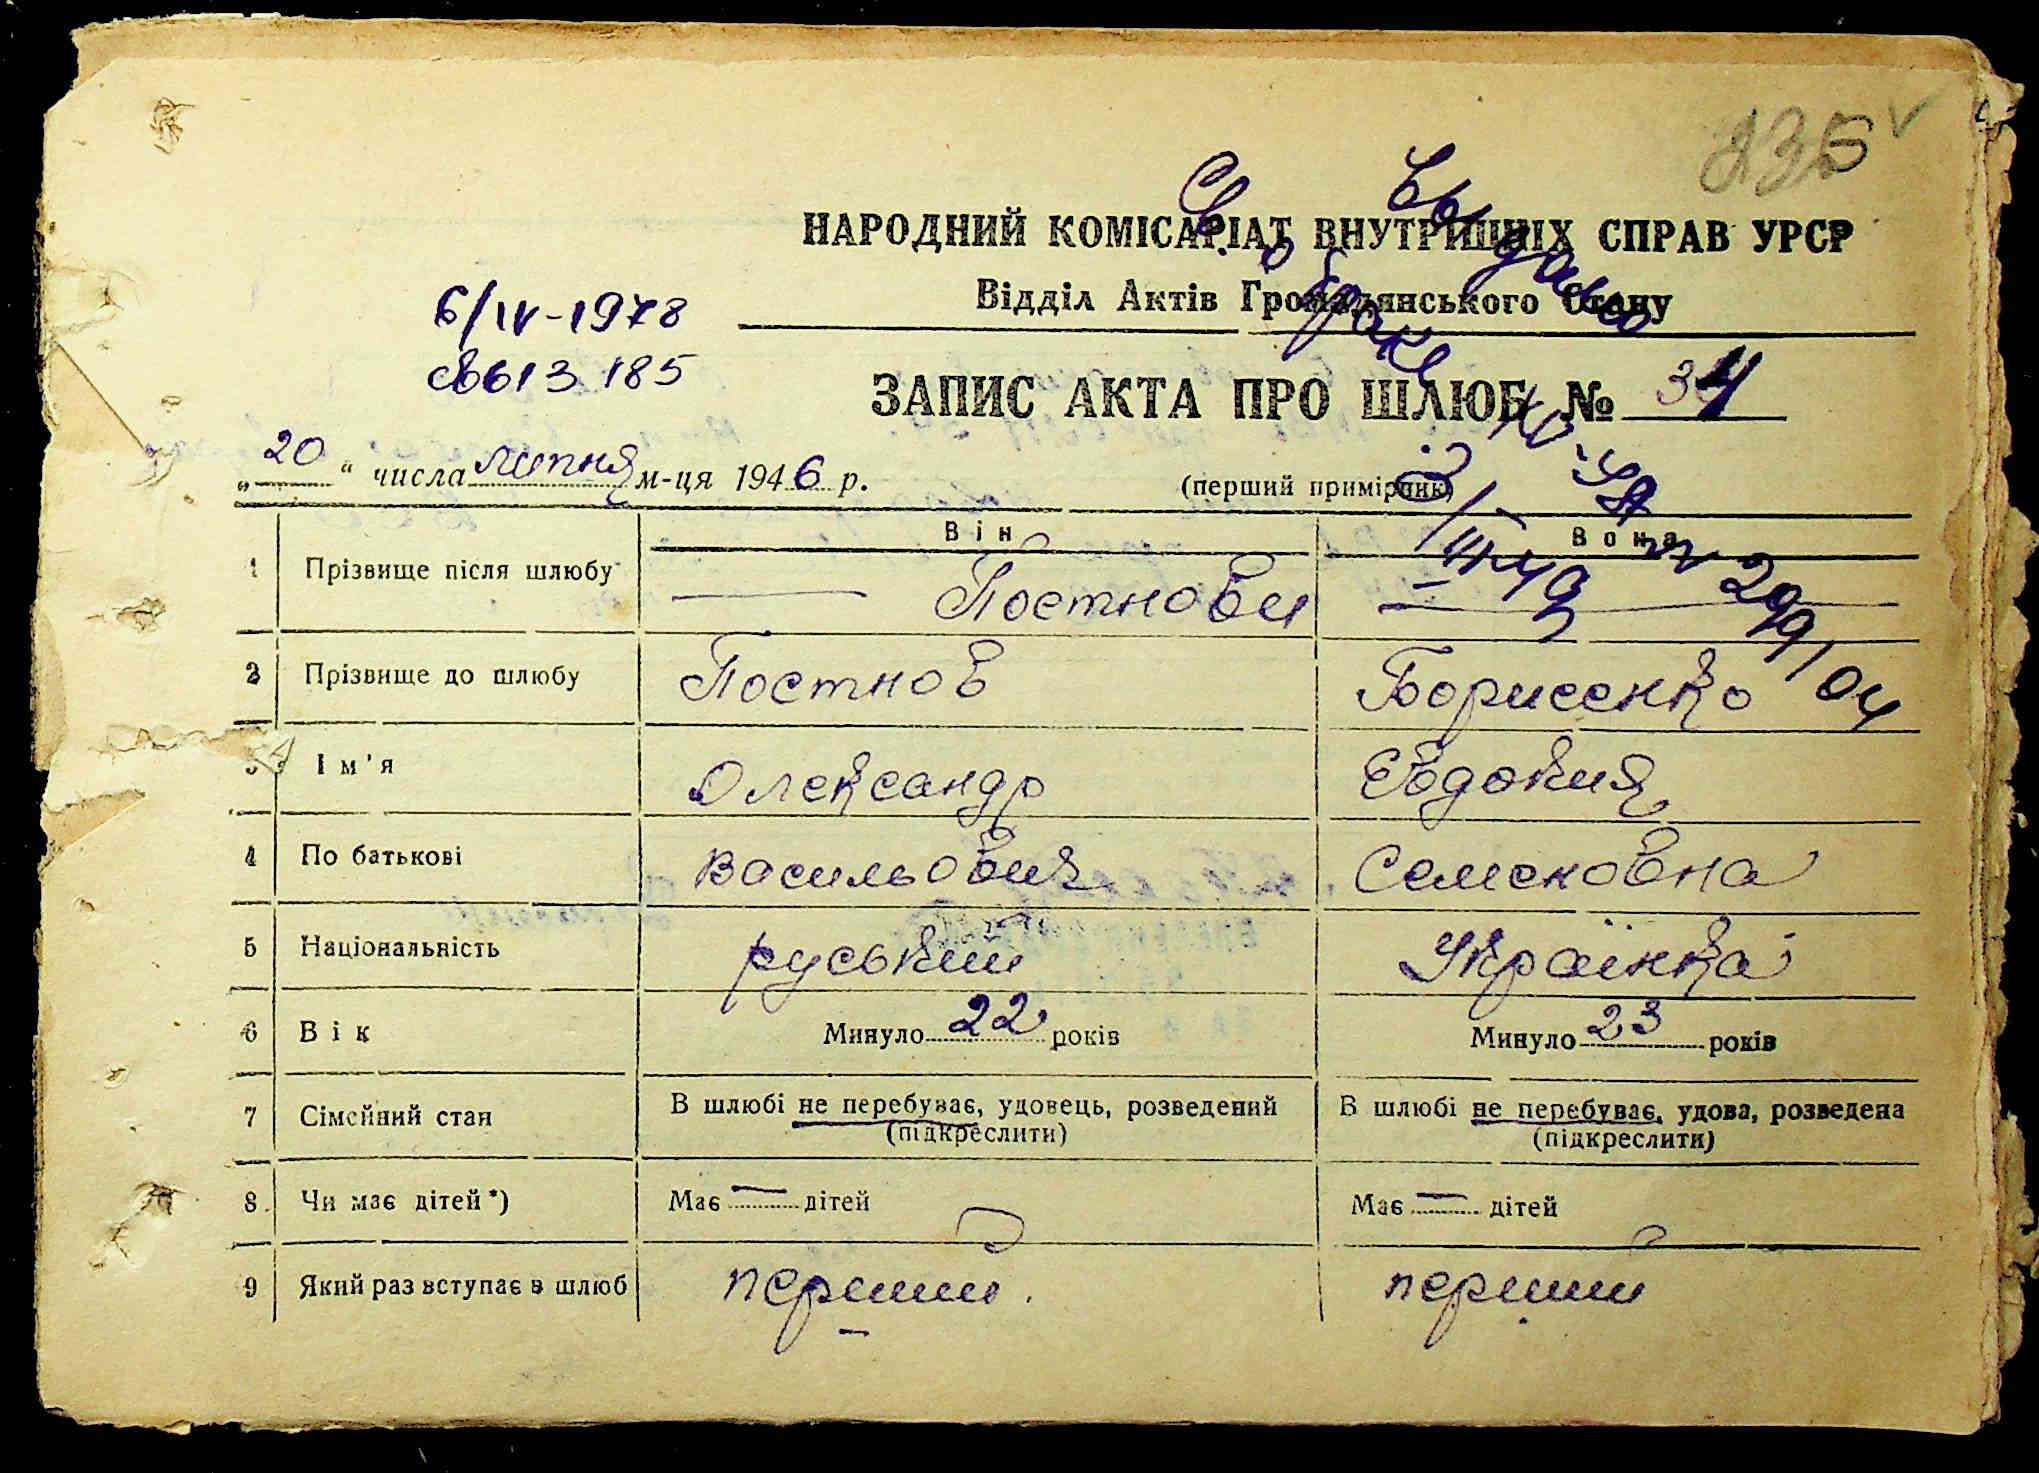 235
НАРОДНИЙ КОМІСАРІАТ ВНУТРІШНІХ СПРАВ УРСР
Відділ Актів Громадянського Стану
6/IV-1978
св613185
Св. о браке выдано
ЗАПИС АКТА ПРО ШЛЮБ № 34
„20“ числа липня м-ця 1946 р. (перший примірник)
3/III-49
Він Вона
1 Прізвище після шлюбу — Постнови —
2 Прізвище до шлюбу Постнов Борисенко
3 Ім'я Олександр Евдокия
4 По батькові Васильович Семеновна
5 Національність руський Українка
6 Вік Минуло 22 років Минуло 23 років
7 Сімейний стан В шлюбі не перебуває, удовець, розведений (підкреслити) В шлюбі не перебуває, удова, розведена (підкреслити)
8 Чи має дітей*) Має — дітей Має — дітей
9 Який раз вступає в шлюб перший. перший